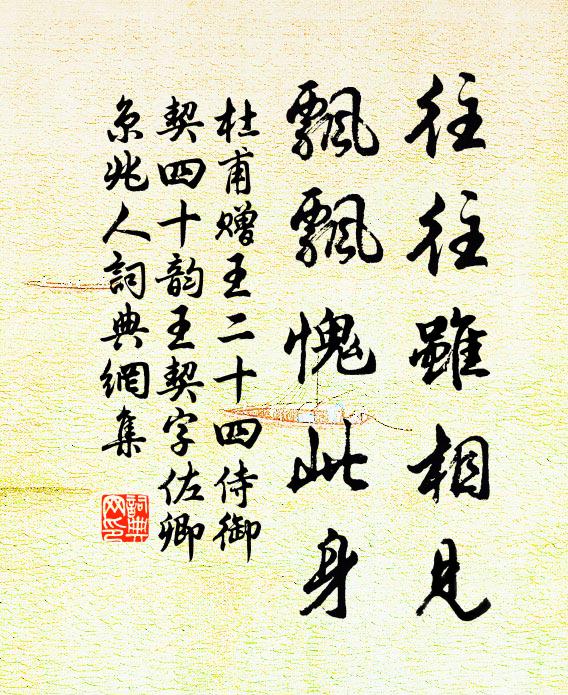 往往雖相見
飄飄愧此身
杜甫赠王二十四侍御
契四十韵王契字佐卿
京兆人詞典網集
詞典
网印